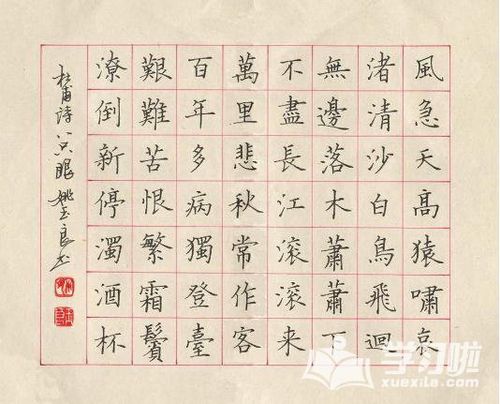 風急天高猿嘯哀
渚清沙白鳥飛迴
無邊落木蕭蕭下
不盡長江滾滾来
萬里悲秋常作客
百年多病獨登臺
艱難苦恨繁霜鬢
潦倒新停濁酒杯
杜甫詩 姚玉良书
学习啦
xuexila.com